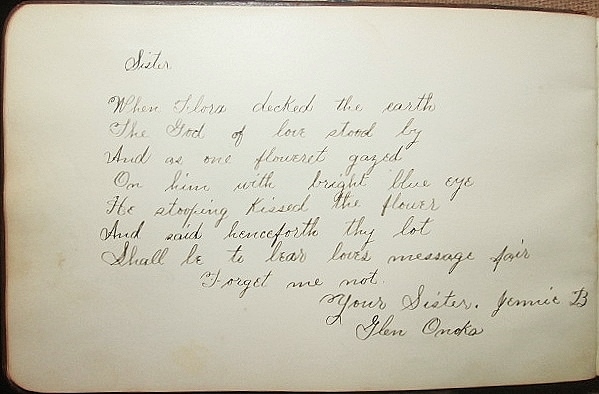 Sister
When Flora decked the earth
The God of love stood by
And as one floweret gazed
On him with bright blue eye
He stooping kissed the flower
And said henceforth thy lot
Shall be to bear loves message fair
Forget me not.
Your Sister. Jennie B
Glen Onoko